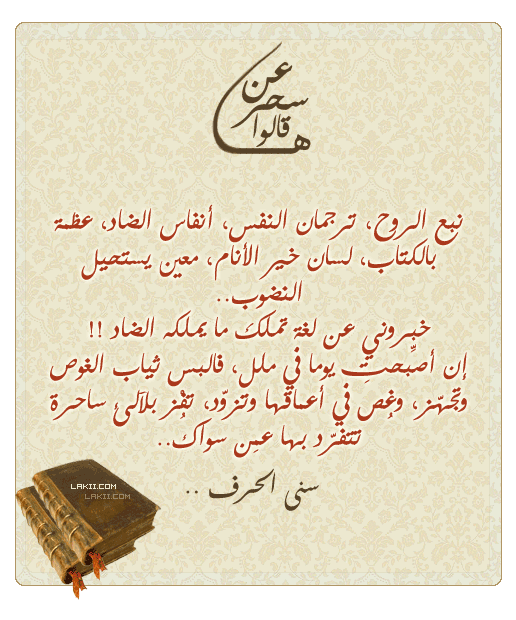 قالوا عن سحرها
نبع الروح، ترجمان النفس، أنفاس الضاد، عظمة
بالكتاب، لسان خير الأنام، معين يستحيل
النضوب..
خبروني عن لغة تملك ما يملكه الضاد !!
إن أصبحتِ يوما في ملل، فالبس ثياب الغوص
وتجهّز، وغُص في أعماقها وتزوّد، تفُز بلآلئ ساحرة
تتفرّد بها عمن سواك..
سنى الحرف ..
LAKII.COM
LAKII.COM